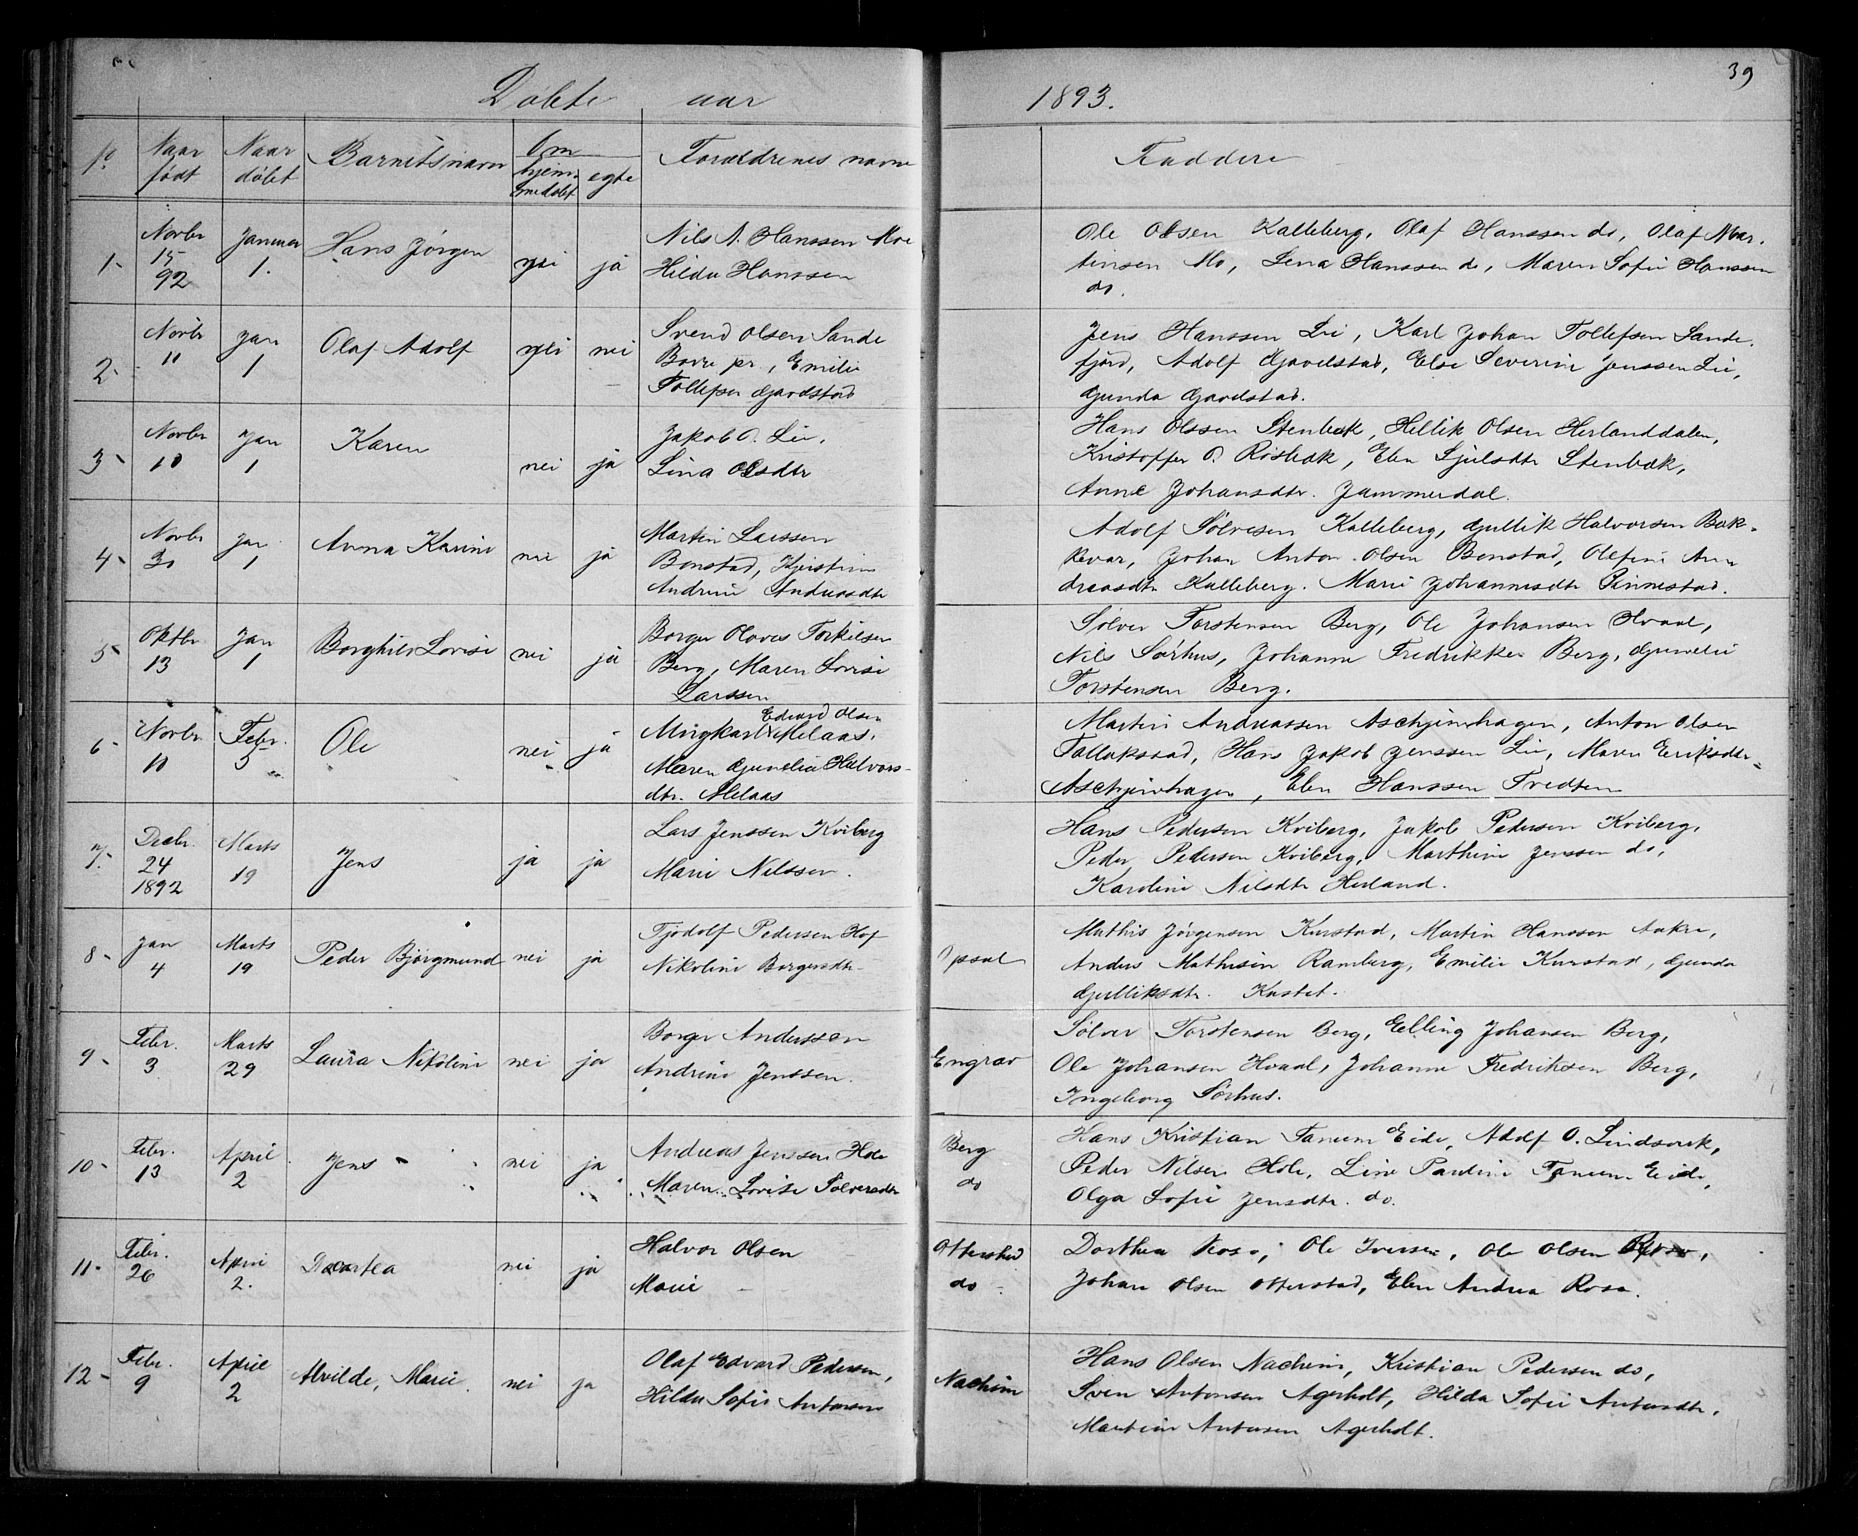 Döbte aar 1893.
39
No
Naar födt
Naar döbt
Barnets navn
Om hjemmedöbt
egte
Forældrenes navne
Faddere
1. Novbr 15 92 Januar 1. Hans Jörgen nei ja
Nils A. Hanssen Moe
Hilda Hanssen
Ole Olsen Kalleberg, Olaf Hanssen do, Olaf Mar-
tensen Mo, Lena Hanssen do, Maren Sofie Hanssen
do.
2. Novbr 11 Jan 1 Olaf Adolf nei nei
Svend Olsen Sande
Borre pr, Emilie
Tollefsen Gjavelstad
Jens Hanssen Lie, Karl Johan Tollefsen Sande-
fjord, Adolf Gjavelstad, Else Severine Jenssen Lie,
Gunda Gjavelstad.
3. Novbr 10 Jan 1 Karen nei ja
Jakob O. Lie,
Lina Olsdtr
Hans Olssen Stenbek, Hellik Olsen Herlanddalen,
Kristoffer O. Risbæk, Elen Sjulsdtr Stenbæk,
Anne Johansdtr. Jammerdal.
4. Novbr 30 Jan 1 Anna Karine nei ja
Martin Larssen
Bonstad, Kjerstine
Andrine Andreasdtr
Adolf Sölvesen Kalleberg, Gullik Halvorsen Bak-
kevar, Johan Anton Olsen Bonstad, Olefine An-
dreasdtr Kalleberg. Marie Johannesdtr Pinnestad.
5. Oktbr 13 Jan 1 Borghild Lovise nei ja
Borger Olaves Torkilsen
Berg, Maren Lovise
Larssen
Sölver Torstensen Berg, Ole Johansen Hvaal,
Nils Sörhus, Johanne Fredrikke Berg, Gunelie
Torstensen Berg.
6. Novbr 11 Febr. 5 Ole nei ja
Edvard Olsen
Melaas,
Maren Gunelie Halvors-
dtr. Melaas
Martin Andreassen Aschjemhagen, Anton Olsen
Tollakstad, Hans Jakob Jenssen Lie, Maren Eriksdtr
Aschjemhagen, Elen Hanssen Tredten
7. Decbr. 24 1892 Marts 19 Jens ja ja
Lars Jenssen Kviberg
Marie Nilssen.
Hans Pedersen Kviberg, Jakob Pedersen Kviberg,
Peder Pedersen Kviberg, Marthine Jenssen do,
Karoline Nilsdtr Herland.
8. Jan 4 Marts 19 Peder Björgmund nei ja
Tjodolf Pedersen Hof
Nikoline Borgersdtr
Opsal
Mathis Jörgensen Kurstad, Martin Hanssen Aakre,
Anders Mathisen Ramberg, Emilie Kurstad, Gunda
Gulliksdtr. Kastet.
9. Febr. 3 Marts 29 Laura Nikoline nei ja
Borger Anderssen
Andrine Jenssen.
Engrav
Sölver Torstensen Berg, Elling Johansen Berg,
Ole Johansen Hvaal, Johanne Fredriksen Berg,
Ingeborg Sörhus.
10. Febr. 13 April 2 Jens nei ja
Andreas Jenssen Hole
Maren Lovise Sölvesdtr
Berg
do
Hans Kristian Tanum Eide, Adolf O. Lindsverk,
Peder Nilsen Hole, Line Pauline Tanum Eide,
Olga Sofie Jensdtr. do.
11. Febr. 26 April 2. Dortea nei ja
Halvor Olsen
Marie
Otterstad
do
Dorthea Rosa, Ole Iversen, Ole Olsen
Johan Olsen Otterstad, Elen Andrea Rosa.
12. Febr. 9 April 2 Alvilde, Marie nei ja
Olaf Edvard Pedersen,
Hilda Sofie Antonsen
Nachim
Hans Olsen Nachim, Kristian Pedersen do,
Sven Antonsen Agerholt, Hilda Sofie Antonsdtr,
Martin Antonsen Agerholt.